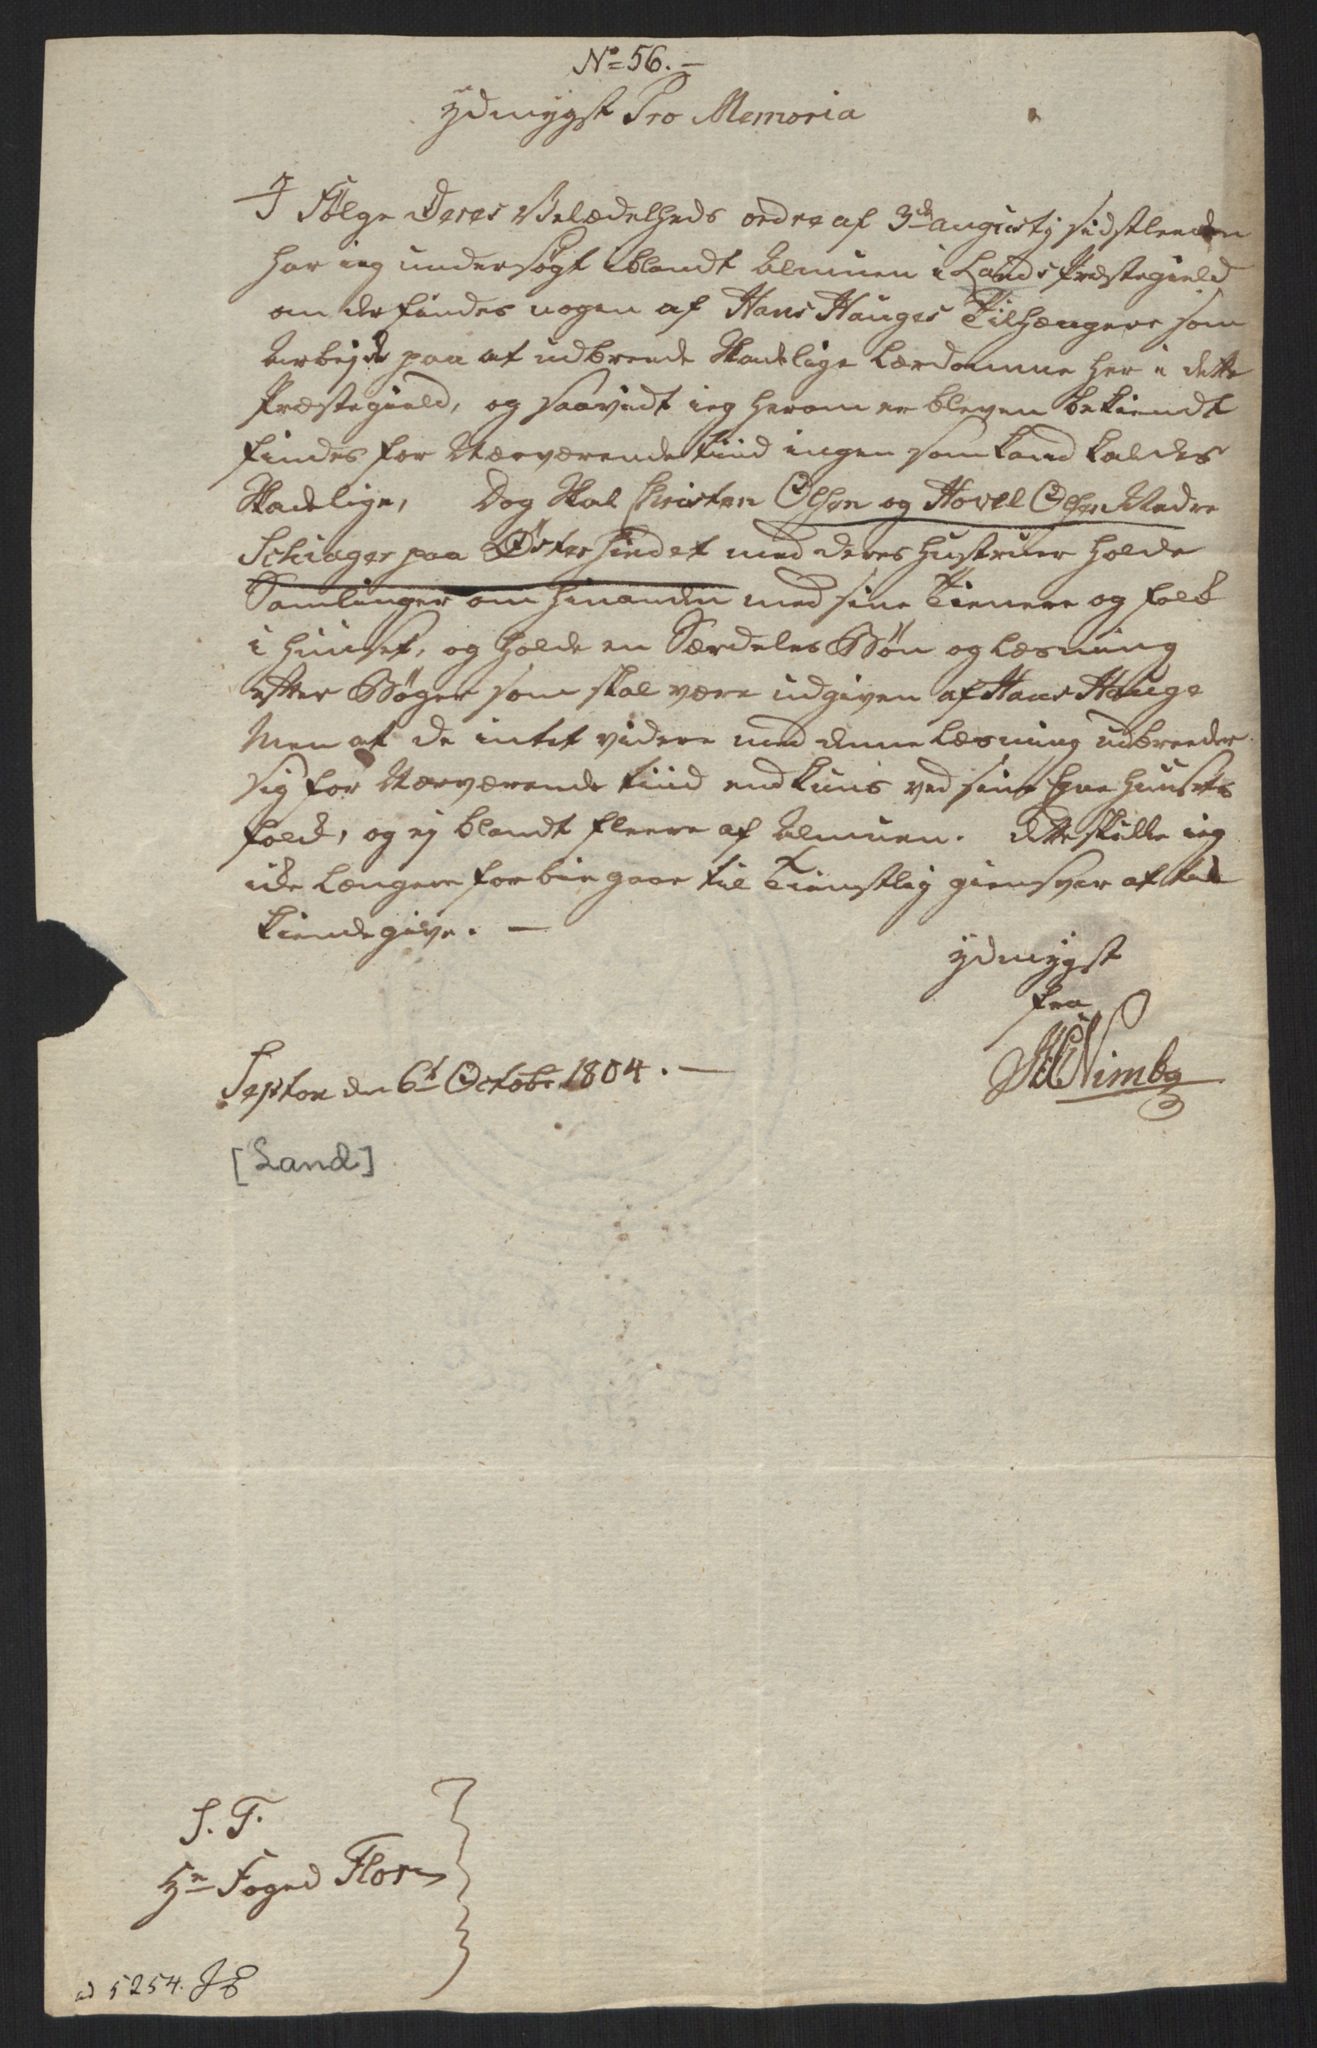 No 56. –
ydmygst Pro Memoria
I Følge Deres Velædelheds ordre af 3de augustj sidstleeden
har ieg undersøgt iblandt Almuen i Lands Præstegield
om der findes nogen af Hans Hauges Tilhængere som
Arbejde paa at udbreede skadelige Lærdomme her i dette
Præstegield, og saavidt ieg herom er bleven bekiendt
findes for Nærværende tiid ingen som kand kaldes
skadelige, Dog skal Christen Olsen og Hovel Olsen Nedre
Schiager paa Østersindet med deres hustruer holde
Samlinger om hinanden med sine Tienere og folk
i huuset, og holde en Særdeles Bøn og Læsning
efter Bøger som skal være udgiven af Hans Hauge
Men at de intet videre med denne Læsning udbreeder
sig for Nærværende tiid end kuns ved sine Egne huusets
folk, og ej blandt fleere af Almuen. dette skulle ieg
icke Længere forbiegaae til Tienstlig giensvar at
tilkiendegive. –
ydmygst
fra
Nimb
den 6t Octobr 1804. –
[Land]
S. T.
Hr Foged Flor
ad 5254.